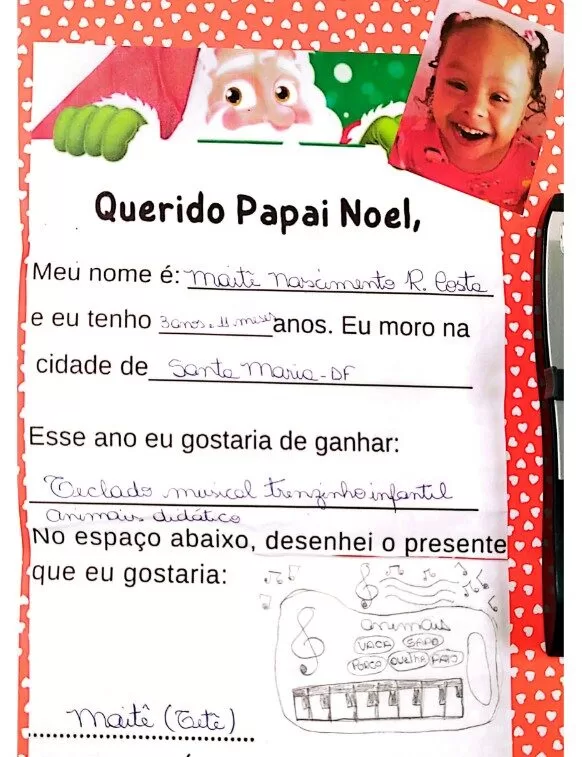 Querido Papai Noel,
Meu nome é: Maitê Nascimento R. Costa
e eu tenho 3 anos e 11 meses anos. Eu moro na
cidade de Santa Maria - DF
Esse ano eu gostaria de ganhar:
Teclado musical trenzinho infantil
animais didático
No espaço abaixo, desenhei o presente
que eu gostaria:
animais
VACA SAPO
PORCO OVELHA PATO
Maitê (Tetê)